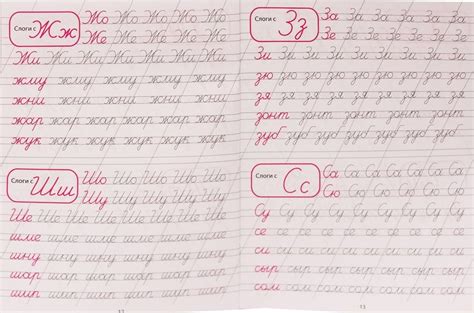 Слоги с Жж Жо Жо Жо Жо Жо
Же Же Же Же Же
Жи Жи Жи Жи Жи Жи Жи
жму жму жму жму жму
жни жни жни жни жни
жар жар жар жар жар
жук жук жук жук жук
Слоги с Шш Шо Шо Шо Шо Шо Шо
Шу Шу Шу Шу Шу Шу
Ше Ше Ше Ше Ше Ше Ше Ше
шме шме шме шме шме
шну шну шну шну шну
шар шар шар шар шар
шип шип шип шип шип
Слоги с Зз За За За За За За
Зе Зе Зе Зе Зе Зе
Зи Зи Зи Зи Зи Зи Зи Зи
зю зю зю зю зю зю зю
зя зя зя зя зя зя зя
зонт зонт зонт зонт зонт
зуб зуб зуб зуб зуб зуб
Слоги с Сс Са Са Са Са Са Са
Сю Сю Сю Сю Сю Сю
Су Су Су Су Су Су Су
се се се се се се се
си си си си си си си
сыр сыр сыр сыр сыр сыр
сом сом сом сом сом сом
13